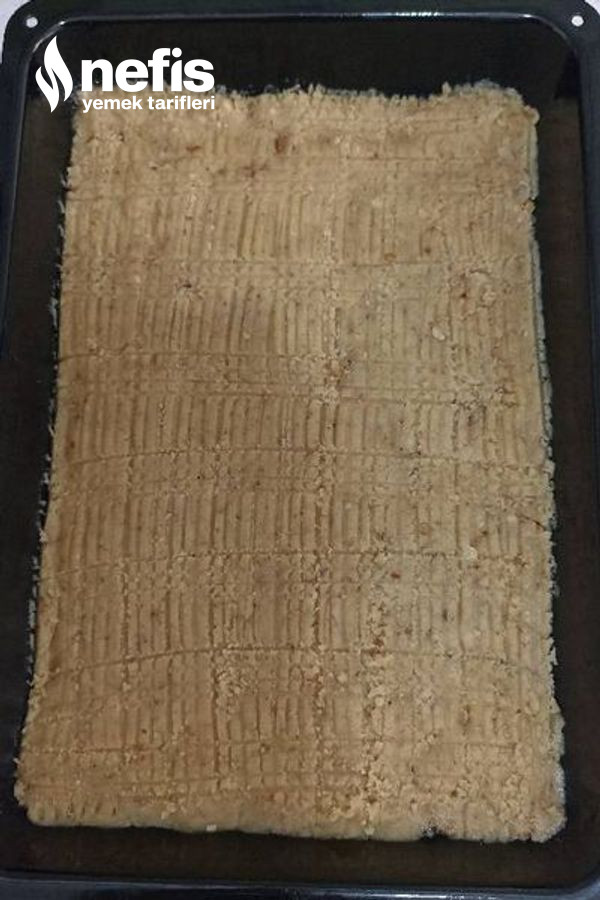 nefis
yemek tarifleri